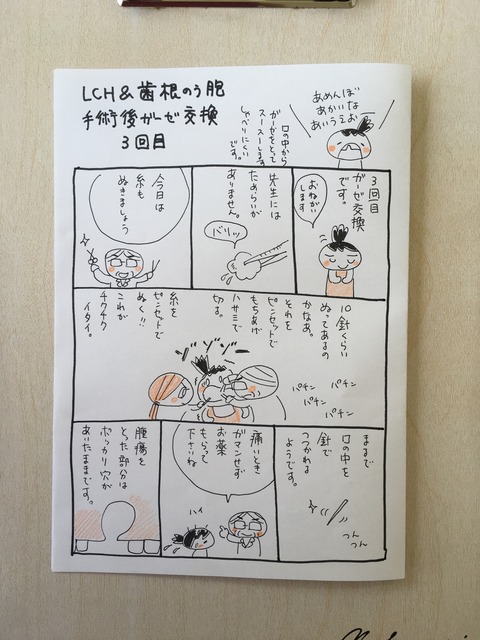 LCH&歯根のう胞
手術後ガーゼ交換
3回目
あめんぼ
あかいな
あいうえお
口の中から
ガーゼをとって
スースーします
しゃべりにくい
です。
3回目
ガーゼ交換
です。
おねがい
します
先生には
ためらいが
ありません。
バリッ
今日は
糸も
ぬきましょう
10針くらい
ぬってあるの
かなあ。
それを
ピンセットで
もちあげ
ハサミで
切る。
糸を
ピンセットで
ぬく!!
これが
チクチク
イタイ。
パチン
パチン
パチン
パチン
まるで
口の中を
針で
つつかれる
ようです。
つん
つん
痛いとき
ガマンせず
お薬
もらって
下さいね
ハイ
腫瘍を
とった部分は
ポッカリ穴が
あいたままです。